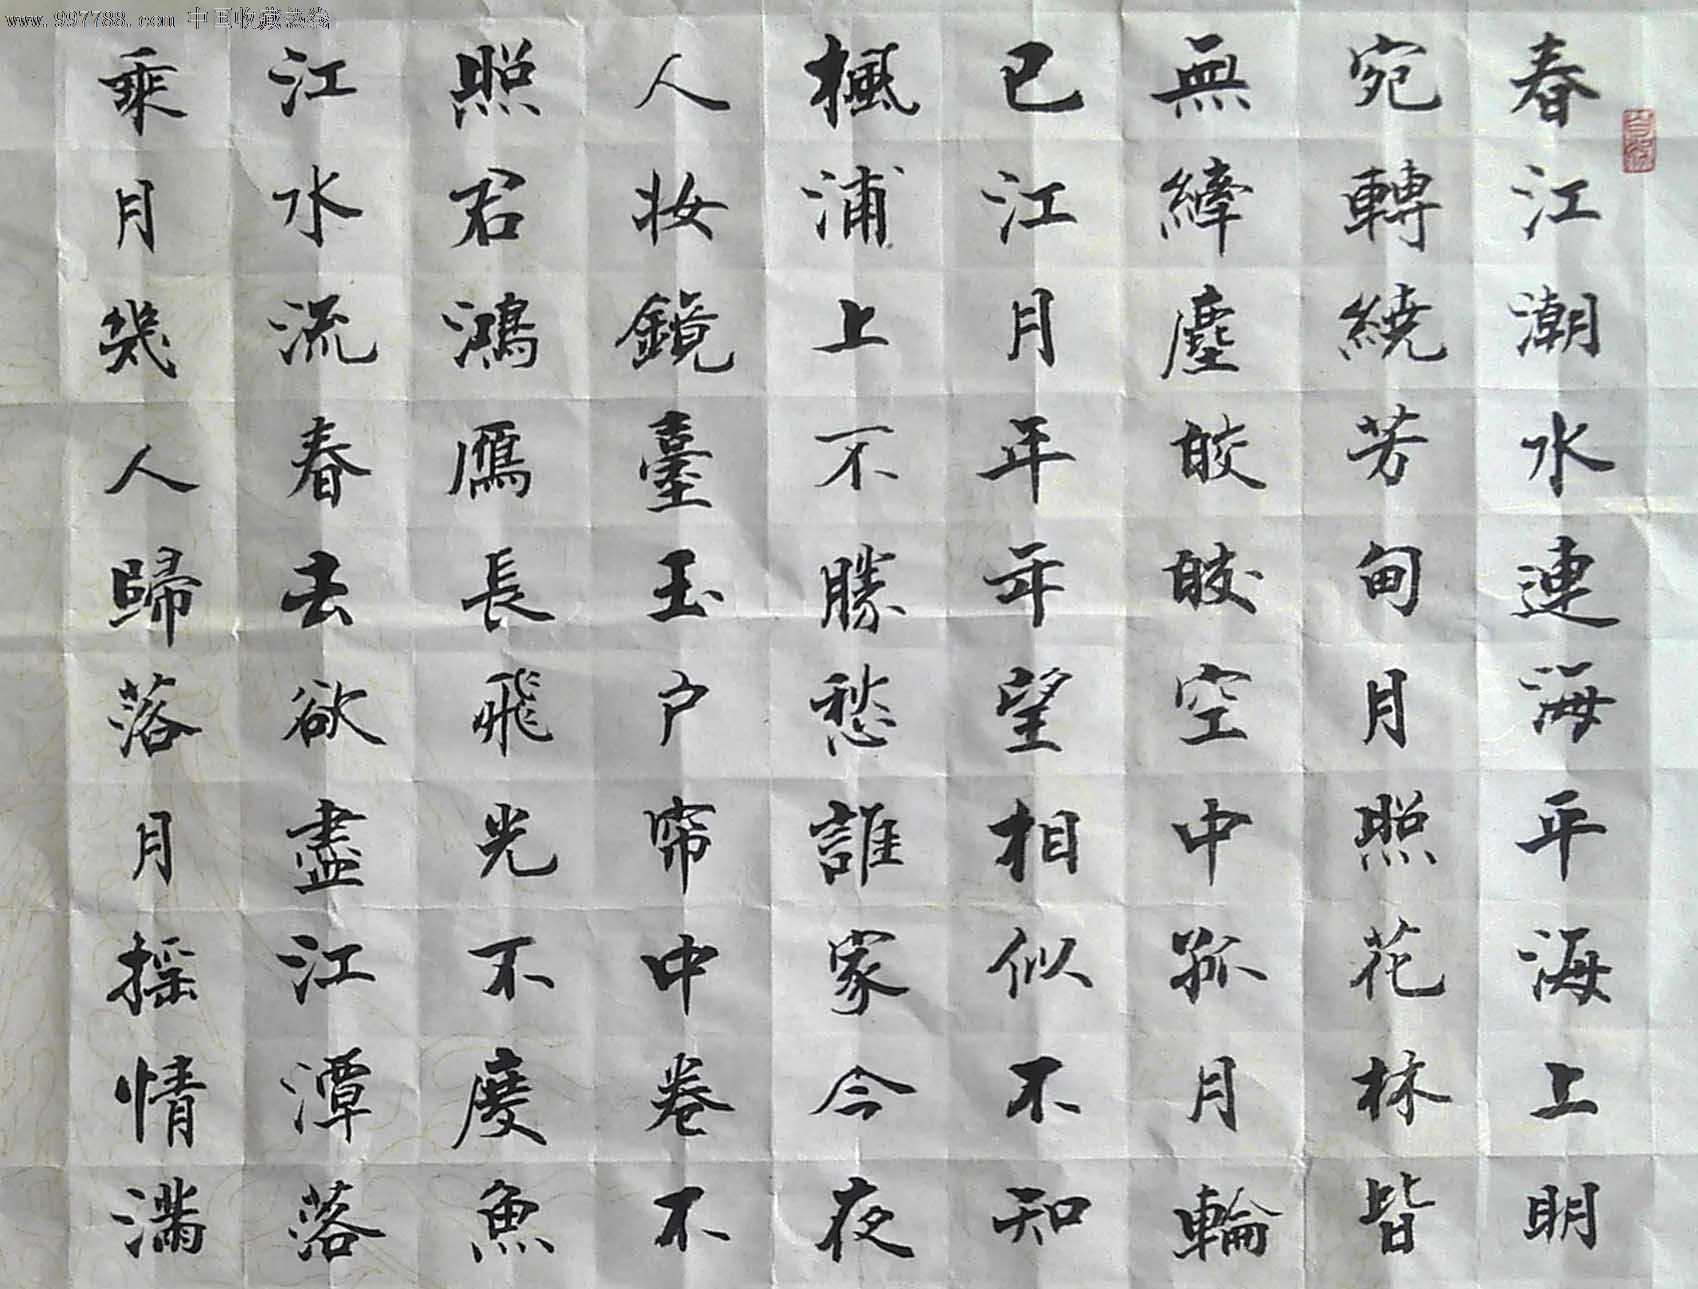 www.997788.com 中国收藏热线
春江潮水連海平海上明
宛轉繞芳甸月照花林皆
無縴塵皎皎空中孤月輪
已江月年年望相似不知
楓浦上不勝愁誰家今夜
人妆鏡臺玉户帘中卷不
照君鴻鴈長飛光不度魚
江水流春去欲盡江潭落
乘月幾人歸落月摇情滿